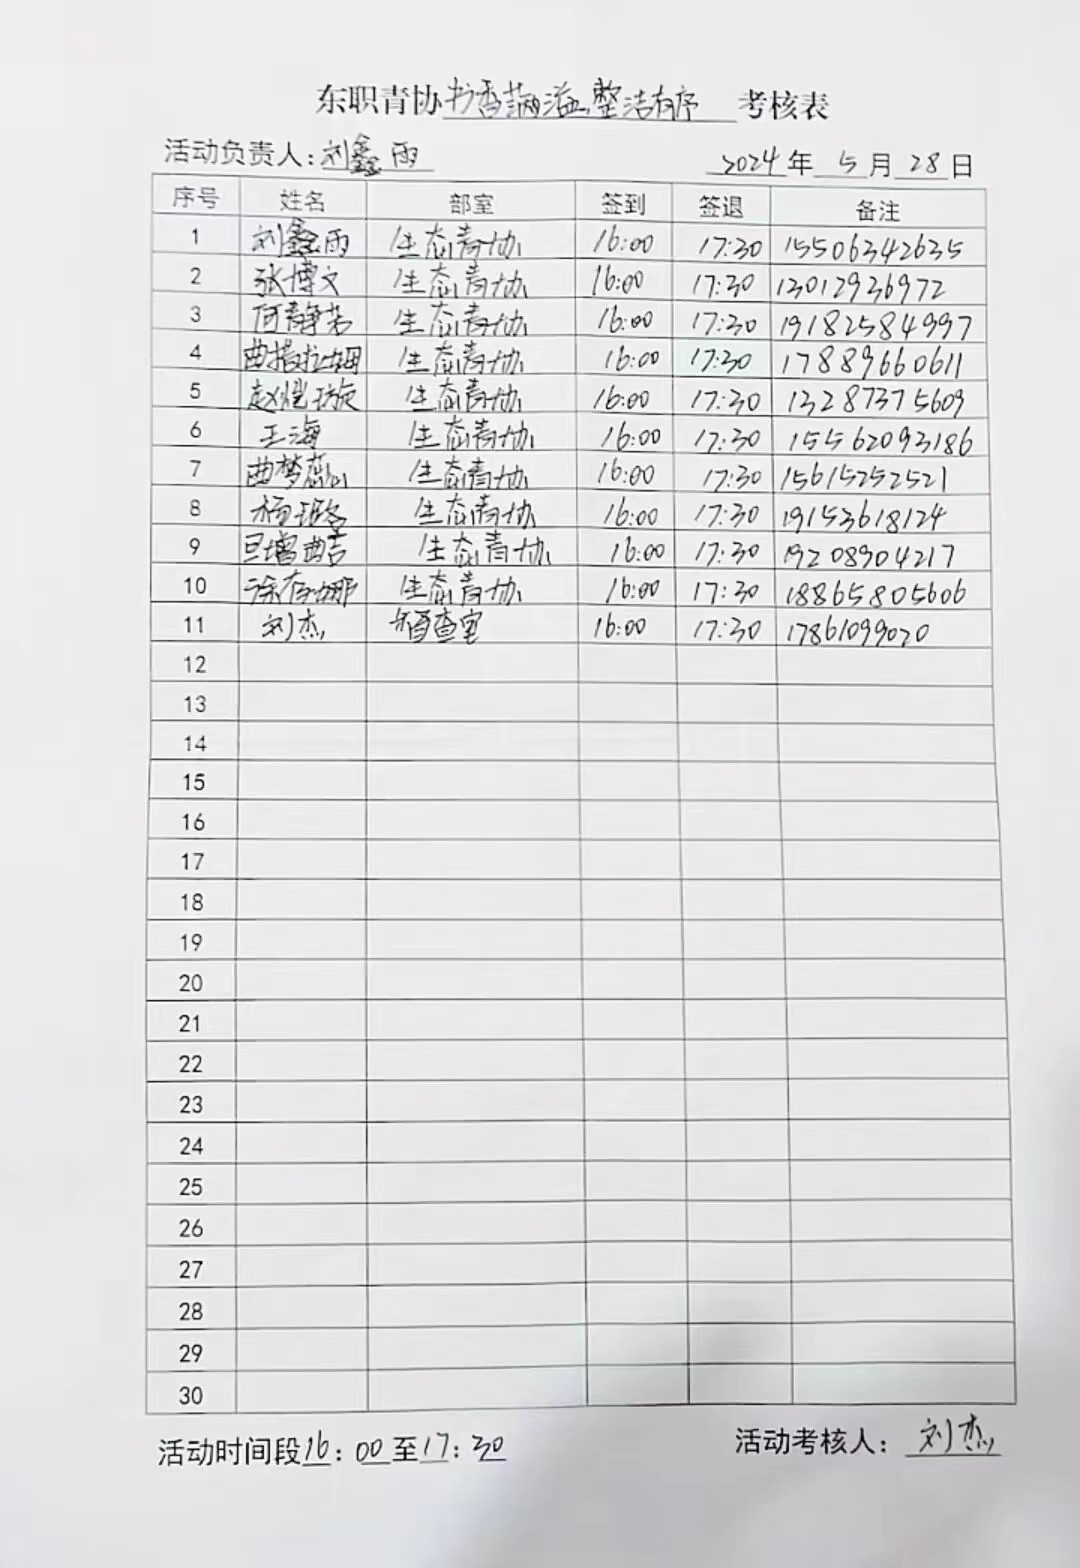 东职青协书香满溢,整洁有序 考核表
活动负责人:刘鑫雨 2024年5月28日
序号 姓名 部室 签到 签退 备注
1 刘鑫雨 生态青协 16:00 17:30 15506342635
2 张博文 生态青协 16:00 17:30 13012936972
3 何静若 生态青协 16:00 17:30 19182584997
4 生态青协 16:00 17:30 17889660611
5 赵恺旋 生态青协 16:00 17:30 13287375609
6 王海 生态青协 16:00 17:30 15562093186
7 曲梦蕊 生态青协 16:00 17:30 15615252521
8 杨璐 生态青协 16:00 17:30 19153618124
9 旦增曲吉 生态青协 16:00 17:30 19208904217
10 生态青协 16:00 17:30 18865805606
11 刘杰 督查室 16:00 17:30 17861099020
12
13
14
15
16
17
18
19
20
21
22
23
24
25
26
27
28
29
30
活动时间段16:00至17:30 活动考核人: 刘杰